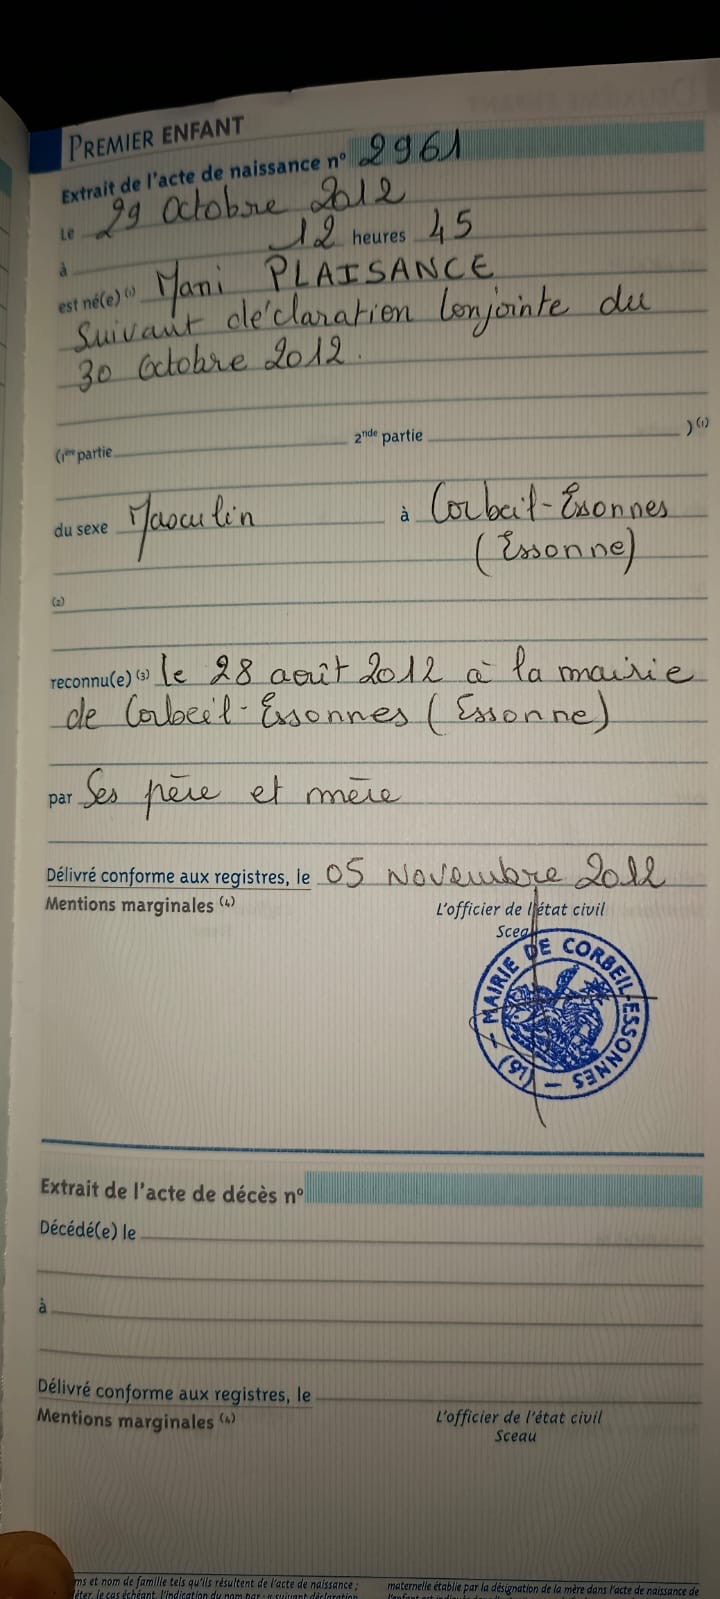 PREMIER ENFANT
Extrait de l'acte de naissance nº 2961
Le 29 Octobre 2012
à 12 heures 45
est né(e) (1) Mani PLAISANCE
Suivant déclaration Conjointe du
30 Octobre 2012.
(1ère partie 2nde partie )(1)
du sexe Masculin à Corbeil-Essonnes
(Essonne)
(2)
reconnu(e) (3) le 28 août 2012 à la mairie
de Corbeil-Essonnes (Essonne)
par Ses père et mère
Délivré conforme aux registres, le 05 Novembre 2012
Mentions marginales (4) L'officier de l'état civil
Sceau
MAIRIE DE CORBEIL-ESSONNES
(91)
Extrait de l'acte de décès nº
Décédé(e) le
à
Délivré conforme aux registres, le
Mentions marginales (4) L'officier de l'état civil
Sceau
ms et nom de famille tels qu'ils résultent de l'acte de naissance ; maternelle établie par la désignation de la mère dans l'acte de naissance de
le cas échéant, l'indication du nom par